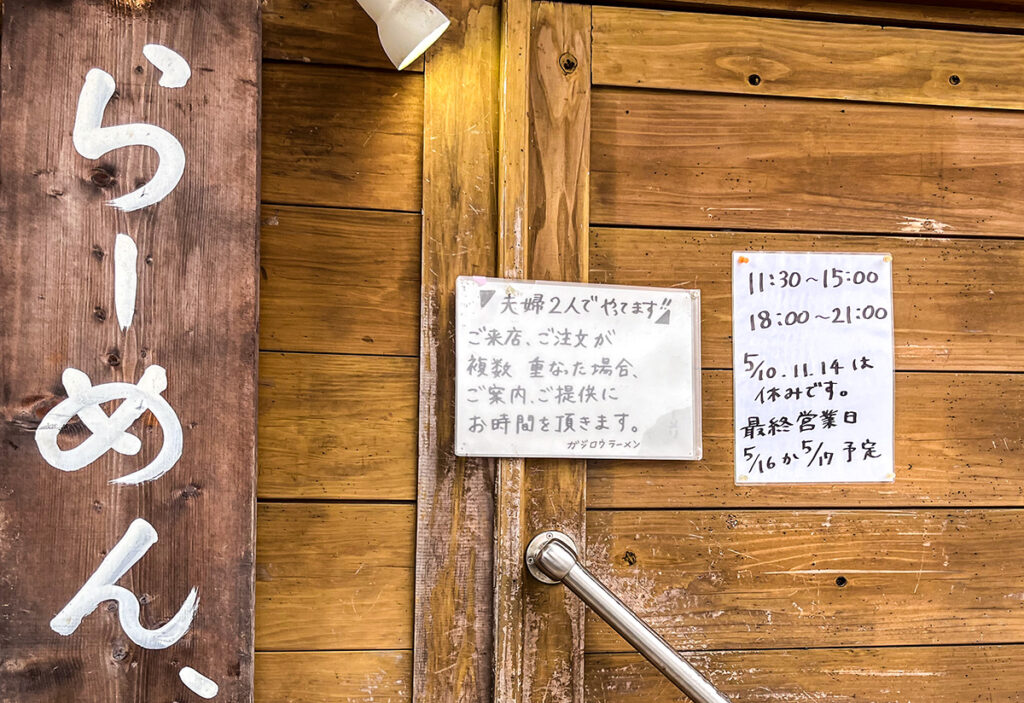 らーめん、
夫婦2人でやってます!!
ご来店、ご注文が
複数 重なった場合、
ご案内、ご提供に
お時間を頂きます。
ガジロウラーメン
11:30～15:00
18:00～21:00
5/10.11.14は
休みです。
最終営業日
5/16か5/17予定